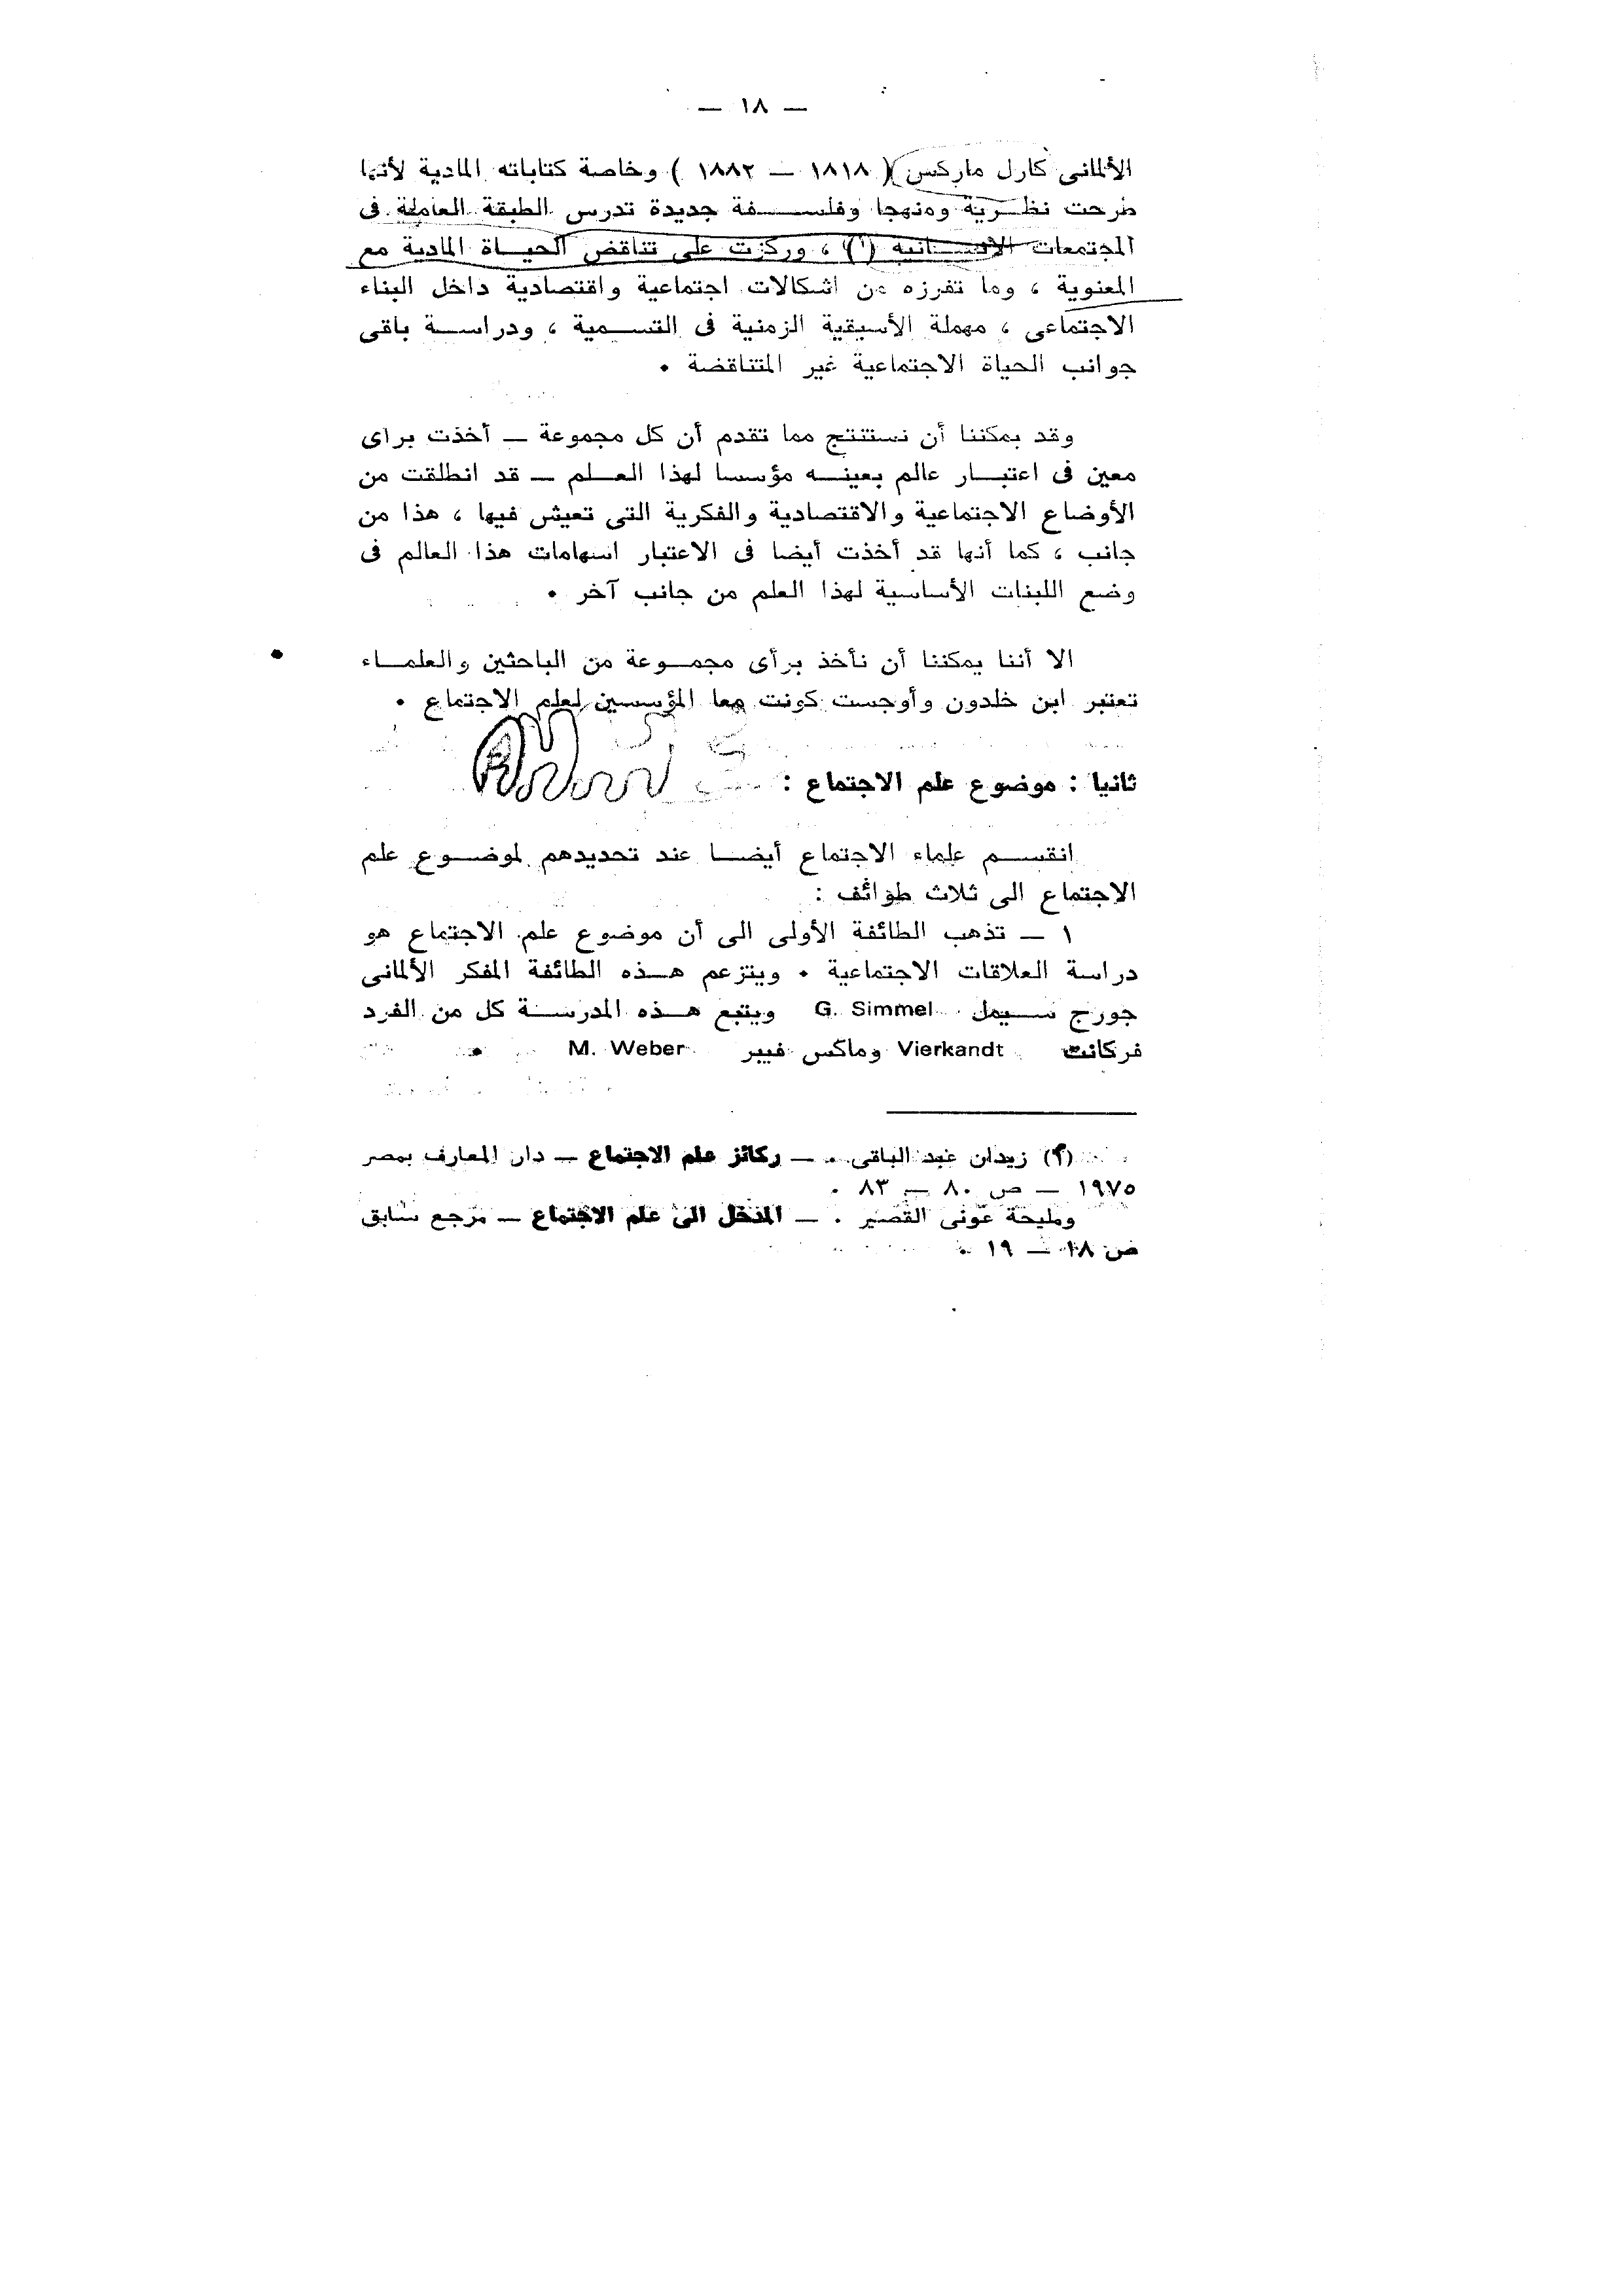 — ١٨ —
الألمانى كارل ماركس ( ١٨١٨ — ١٨٨٢ ) وخاصة كتاباته المادية لأنها
طرحت نظرية ومنهجا وفلسفة جديدة تدرس الطبقة العاملة فى
المجتمعات الانسانية (١) ، وركزت على تناقض الحياة المادية مع
المعنوية ، وما تفرزه من اشكالات اجتماعية واقتصادية داخل البناء
الاجتماعى ، مهملة الأسبقية الزمنية فى التسمية ، ودراسة باقى
جوانب الحياة الاجتماعية غير المتناقضة •
وقد يمكننا أن نستنتج مما تقدم أن كل مجموعة — أخذت برأى
معين فى اعتبار عالم بعينه مؤسسا لهذا العلم — قد انطلقت من
الأوضاع الاجتماعية والاقتصادية والفكرية التى تعيش فيها ، هذا من
جانب ، كما أنها قد أخذت أيضا فى الاعتبار اسهامات هذا العالم فى
وضع اللبنات الأساسية لهذا العلم من جانب آخر •
الا أننا يمكننا أن نأخذ برأى مجموعة من الباحثين والعلماء
تعتبر ابن خلدون وأوجست كونت معا المؤسسين لعلم الاجتماع •
ثانيا : موضوع علم الاجتماع :
انقسم علماء الاجتماع أيضا عند تحديدهم لموضوع علم
الاجتماع الى ثلاث طوائف :
١ — تذهب الطائفة الأولى الى أن موضوع علم الاجتماع هو
دراسة العلاقات الاجتماعية • ويتزعم هذه الطائفة المفكر الألمانى
جورج سيمل G. Simmel ويتبع هذه المدرسة كل من الفرد
فركانت Vierkandt وماكس فيبر M. Weber •
زيدان عبد الباقى • — ركائز علم الاجتماع — دار المعارف بمصر
١٩٧٥ — ص ٨٠ — ٨٣ •
ومليحة عونى القصير • — المدخل الى علم الاجتماع — مرجع سابق
ص ١٨ — ١٩ •